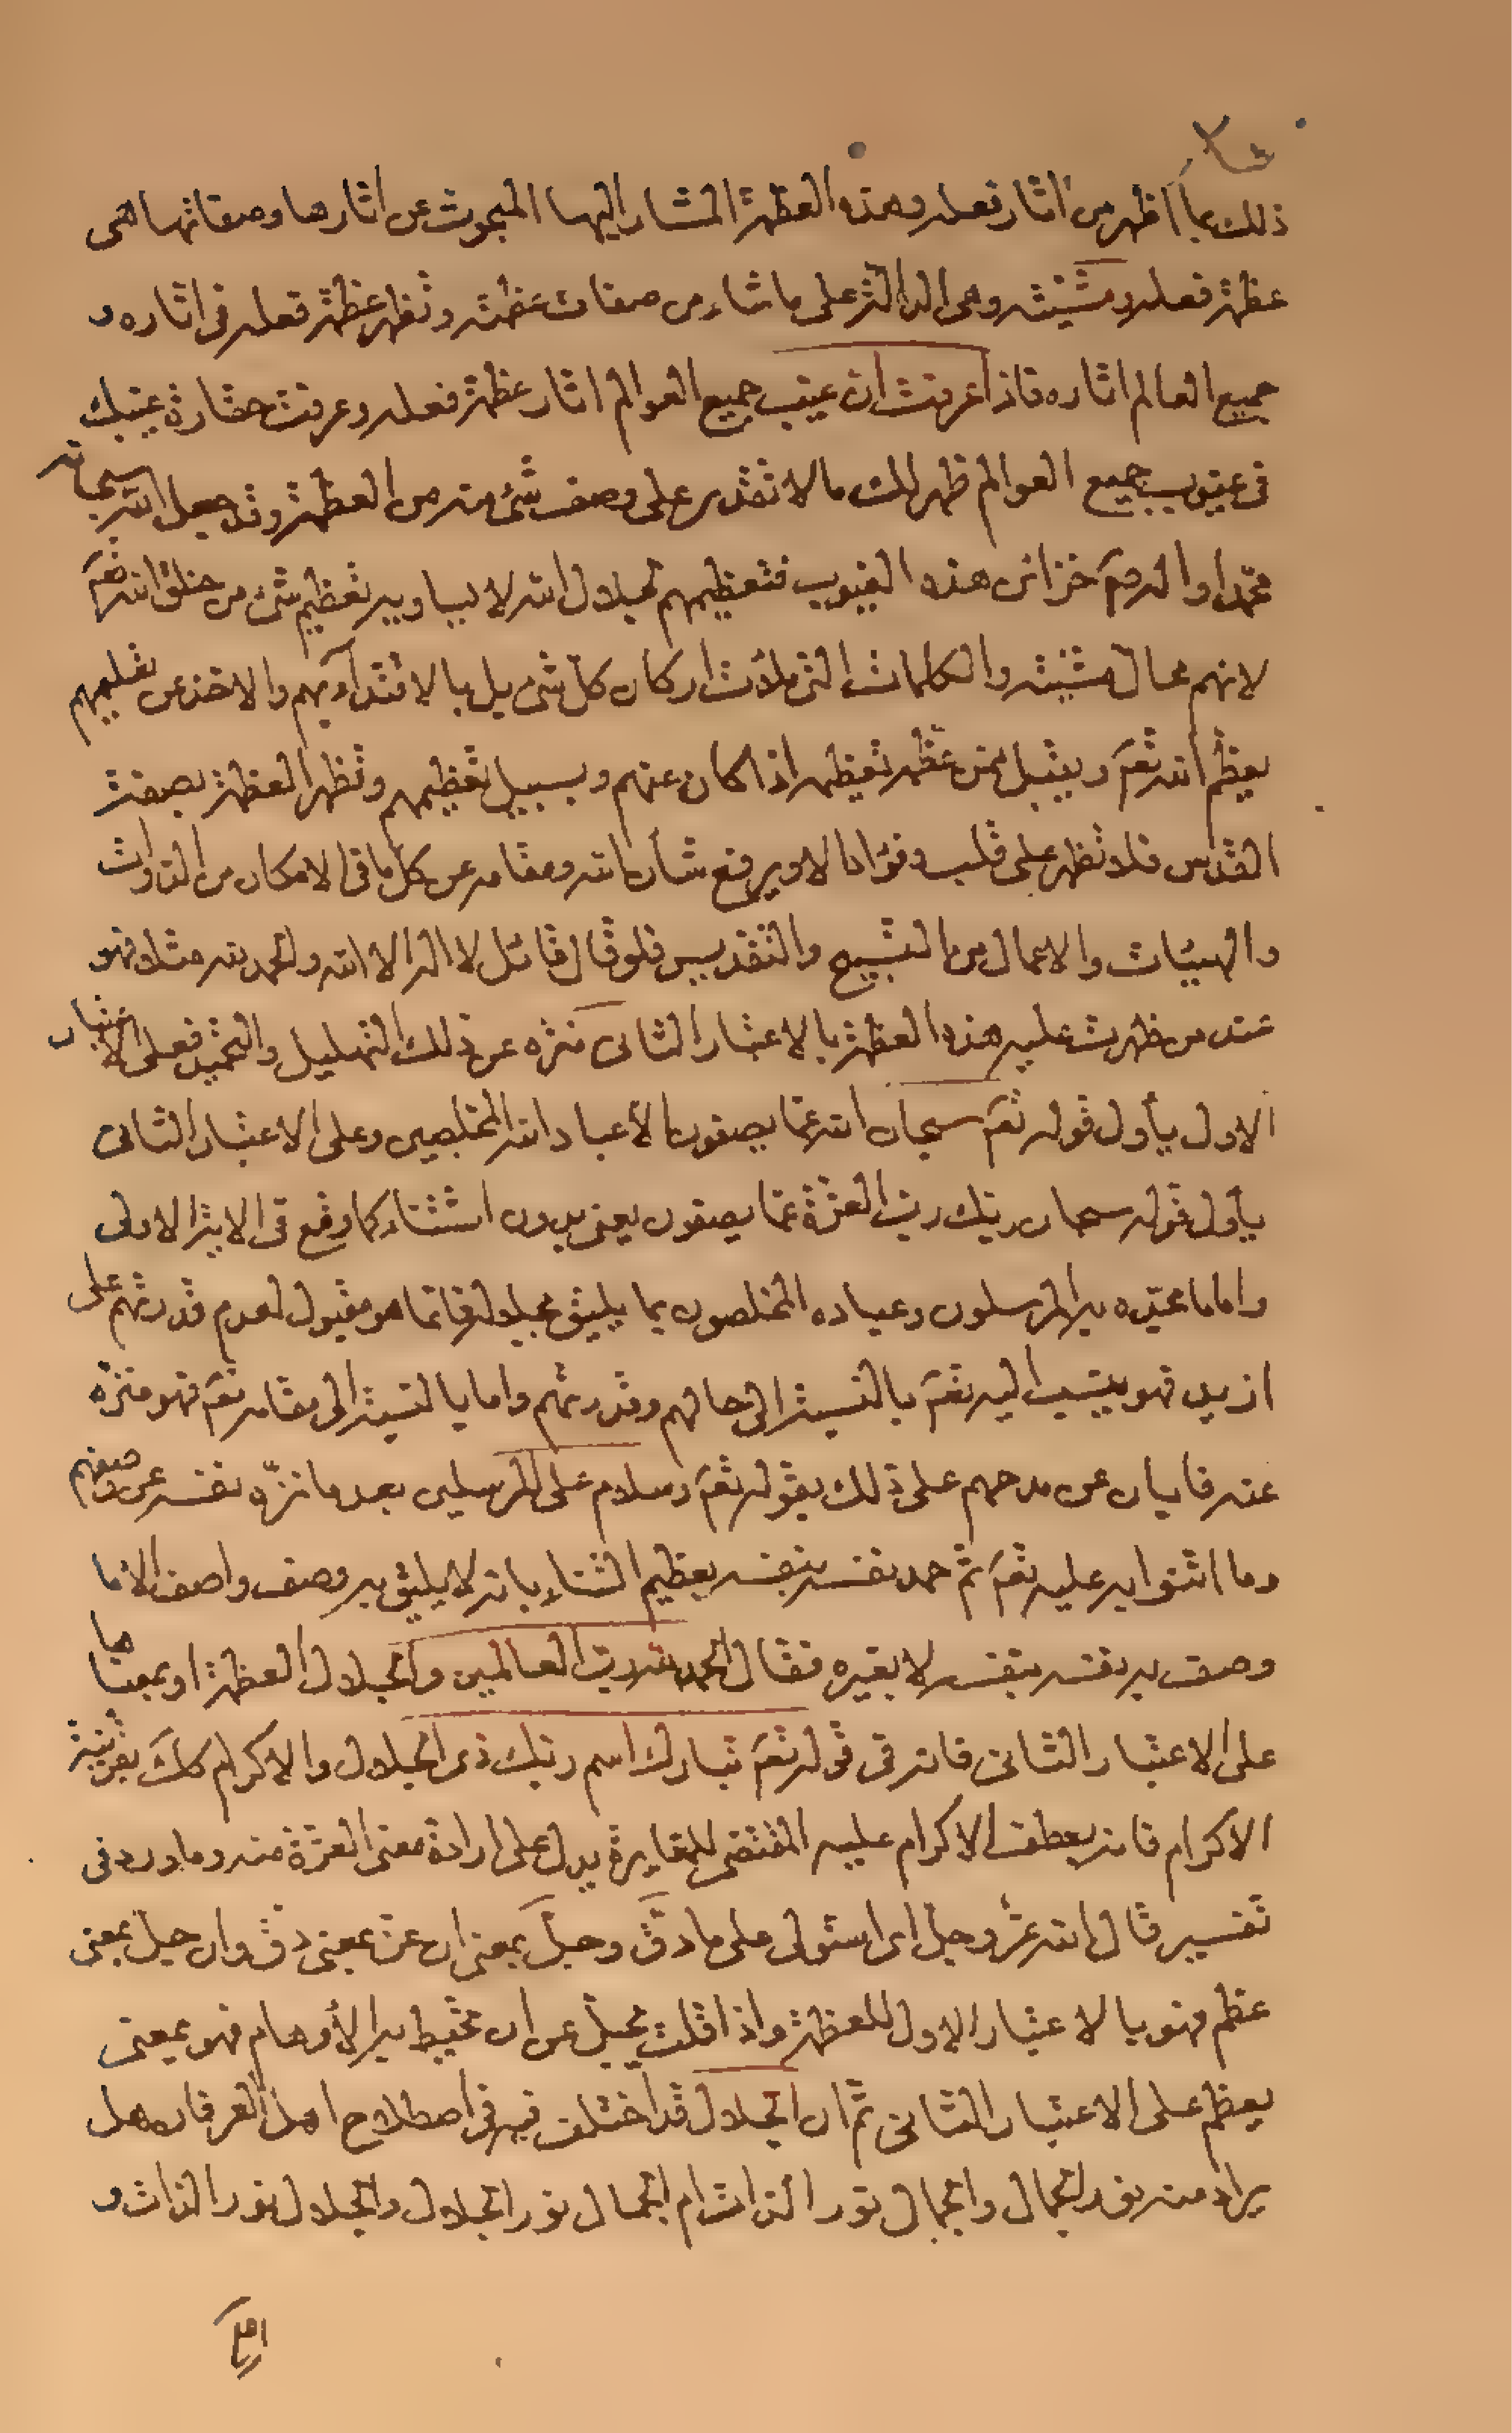 ذلك بما اظهر من اثار فعله وهذه العظمة المشار اليها المبحوث عن اثارها وصفاتها هى
عظمة فعله ومشيته وهى الدالة على ما شاء من صفات عظمته وتظهر عظمة فعله فى اثاره و
جميع العالم اثاره فاذا عرفت ان غيب جميع العوالم اثار عظمة فعله وعرفت حقارة غيبك
فى غيوب جميع العوالم ظهر لك ما لا تقدر على وصف شئ منه من العظمة وقد جعل الله سبحانه
محمدا واله صم خزائن هذه الغيوب فتعظيمهم لجلال الله لا يساويه تعظيم شئ من خلق الله تعم
لانهم محال مشيته والكلمات التى ملأت اركان كل شئ بل بالاقتداء بهم والاخذ عن تعليمهم
يعظم الله تعم ويقبل ممن عظمه تعظيمه اذا كان عنهم وبسبيل تعظيمهم وتظهر العظمة بصفة
القدس فلا تظهر على قلب وفؤاد الا ويرفع شأن الله ومقامه عن كل ما فى الامكان من الذوات
والهيئات والاعمال من التسبيح والتقديس فلو قال قائل لا اله الا الله والحمد لله مثلا فهو
عند من ظهرت عليه هذه العظمة بالاعتبار الثانى منزه عن ذلك التهليل والتحميد فعلى الاعتبار
الاول يأول قوله تعم سبحان الله عما يصفون الا عباد الله المخلصين وعلى الاعتبار الثانى
يأول قوله سبحان ربك رب العزة عما يصفون يعنى بدون استثناء كما وقع فى الاية الاولى
واما ما يحمده به المرسلون وعباده المخلصون بما يليق بجلاله فانما هو مقبول لعدم قدرتهم على
ازيد فهو ينسب اليه تعم بالنسبة الى حالهم وقدرتهم واما بالنسبة الى مقامه تعم فهو منزه
عنه فابان عن مدحهم على ذلك بقوله تعم وسلام على المرسلين بعد ما نزه نفسه عن وصفهم
وما اثنوا به عليه تعم ثم حمد نفسه بنفسه بعظيم الثناء بانه لا يليق به وصف واصف الا ما
وصف به نفسه بنفسه لا بغيره فقال الحمد لله رب العالمين والجلال العظمة او بمعناها
على الاعتبار الثانى فانه فى قوله تعم تبارك اسم ربك ذى الجلال والاكرام كك بقرينة
الاكرام فانه بعطف الاكرام عليه المقتضى للمغايرة يدل على ارادة معنى العزة منه وما ورد فى
تفسير قال الله عز وجل اى استولى على ما دق وجل بمعنى ان عز بمعنى دق وان جل بمعنى
عظم فهو بالاعتبار الاول للعظمة واذا قلت يجل عن ان تحيط به الأوهام فهو بمعنى
يعظم على الاعتبار الثانى ثم ان الجلال قد اختلف فيه فى اصطلاح اهل العرفان هل
يراد منه نور الجمال والجمال نور الذات ام الجمال نور الجلال والجلال نور الذات و